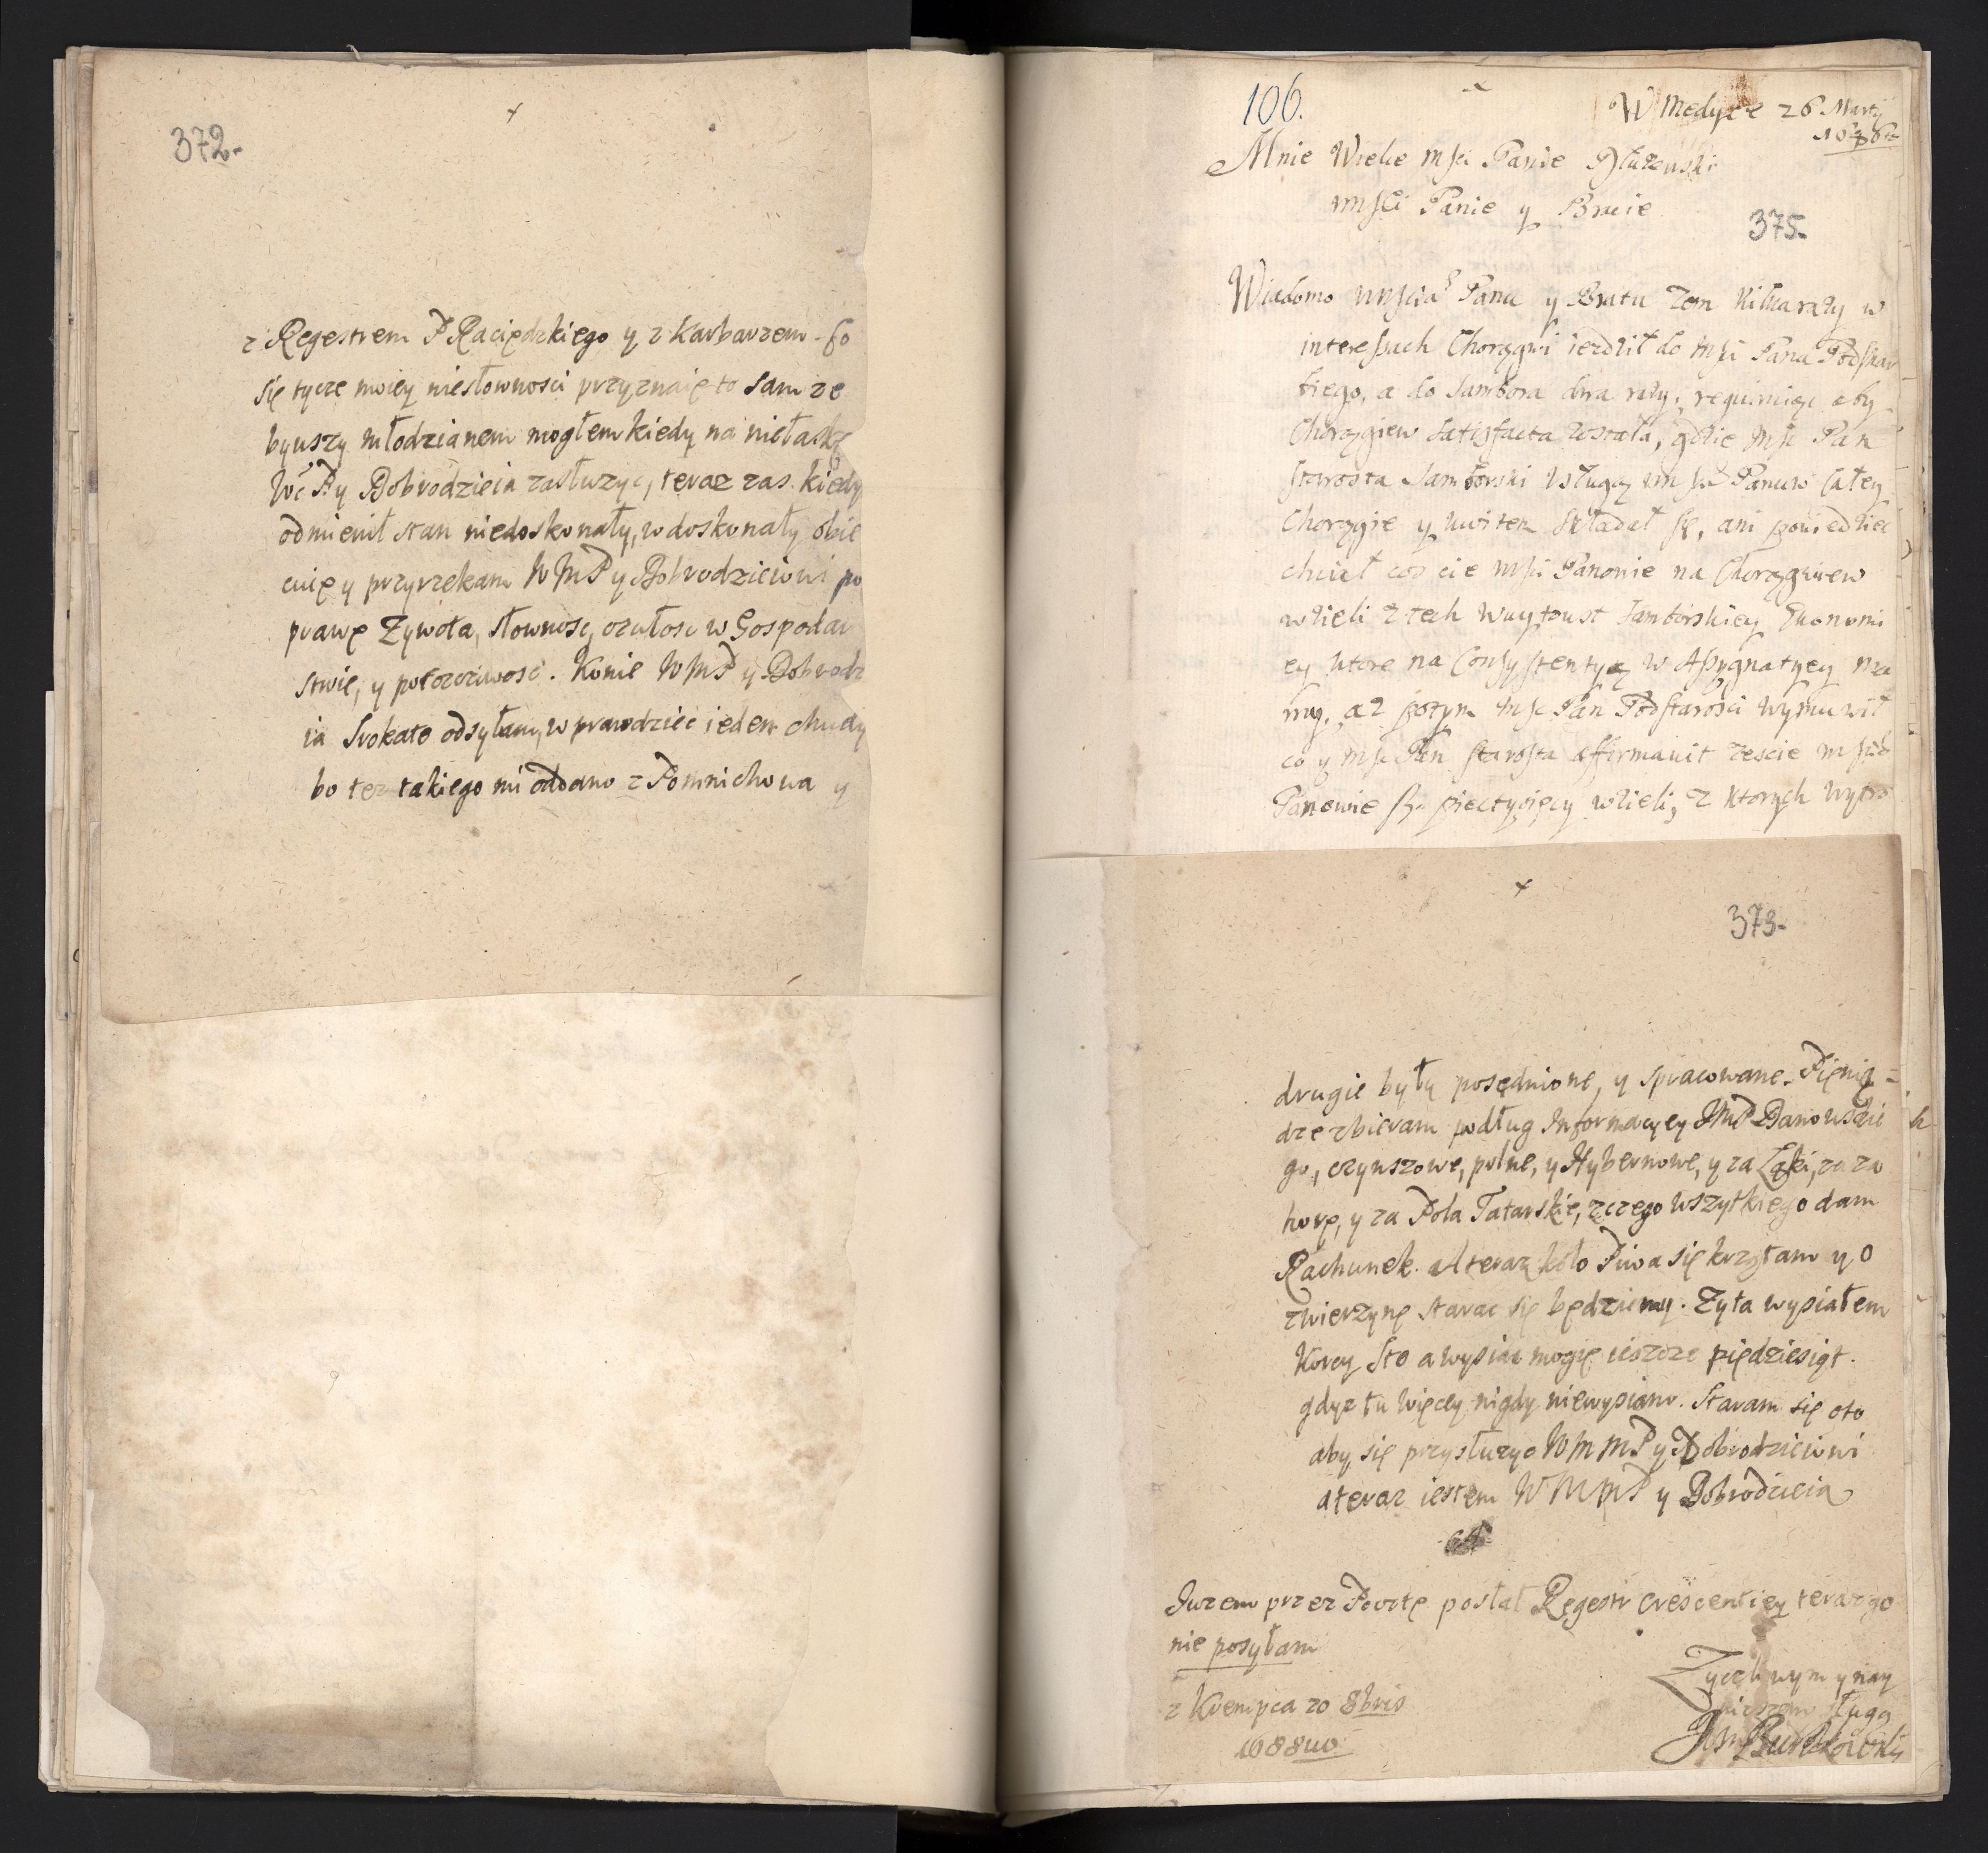 372.
z Regestrem P Raciędzkiego y z Karbarzem. Co
się tycze moiey niesłownosci przyznaię to sam ze
bywszy młodzianem mogłem kiedy na niełaskę
y Dobrodzieia zasłuzyc, teraz zas kiedy
odmienił stan niedoskonały, w doskonały obie
cuię y przyrzekam WMP y Dobrodzieiowi po
prawę Zywota, słownosc, czułosc w Gospodar
stwie, y poczciwosć. Konie WMP y Dobrodz
ia Srokate odsyłam, w prawdzieć ieden chudy
bo tez takiego mi oddano z Pomnichowa y
106.
W Medyce 26 Marty
Mnie Wielce Msci Panie Dłuzewski
mMsci Panie y Bracie
375.
Wiadomo Panu y Bratu zem kilka razy w
interessach Chorągwi iezdził do Msci Pana Podskar
biego, a do Sambora dwa razy, requiruiąc aby
Chorągiew satisfacta została, gdzie Msc Pan
Starosta Samborski Panow całey
Chorągwie y składał się, ani powiedziec
chciał Panowie na Chorągiew
wzieli z tech Samborskiey Ekonomi
ey ktore na Consystentyą w Assygnatyey ma
my, az potym Msc Pan Podstarosci wymuwił
co y Msc Pan Starosta affirmauit zescie
Panowie wzieli, z ktorych wytrą
373.
drugie były posędnione, y spracowane. Pienią=
dze zbieram podług Informacyey JMP Danowskie
go, czynszowe, polne, y Hybernowe, y za Łąki, za za
horę, y za Pola Tatarskie, z czego wszytkiego dam
Rachunek. A teraz koło Piwa się krzątam y o
zwierzynę starac się będziemy. Zyta wysiałem
Korcy Sto a wysiac mogię ieszcze piędziesiąt.
gdyz tu więcey nigdy niewysiano. Staram się oto
aby się przysłuzyc WMMP y Dobrodzieiowi
a teraz iestem WMMP y Dobrodzieia
Juzem przez Pocztę posłał Regestr Crescentiey teraz go
nie posyłam
Zyczliwym y nay
nizszem sługą
z Krempca 20 8bris
1688uo